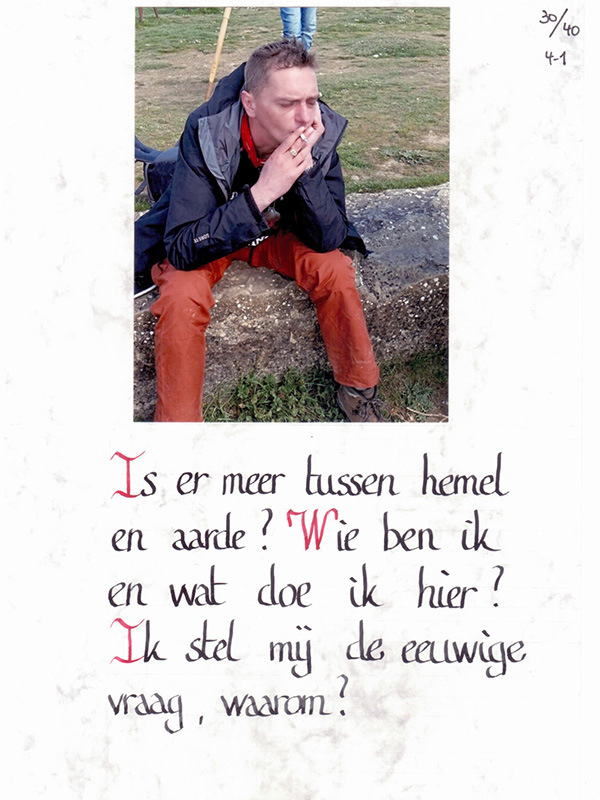 30/40
4-1
Is er meer tussen hemel
en aarde? Wie ben ik
en wat doe ik hier?
Ik stel mij de eeuwige
vraag, waarom?